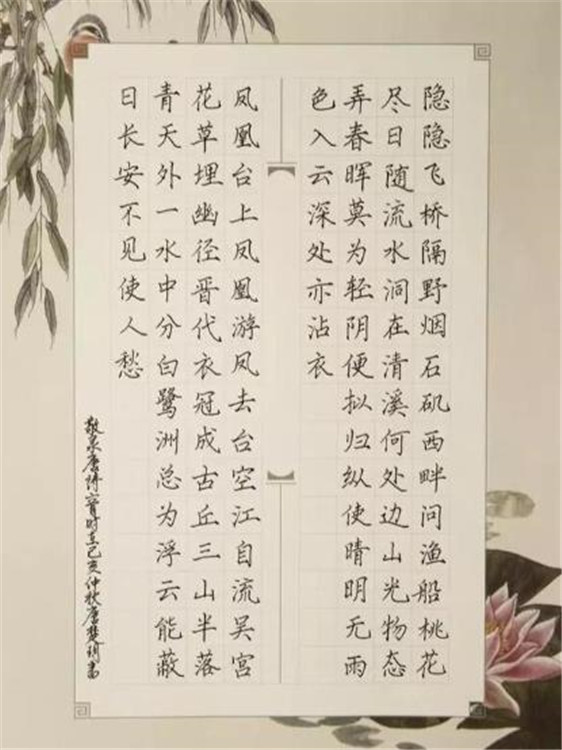 隐隐飞桥隔野烟石矶西畔问渔船桃花
尽日随流水洞在清溪何处边山光物态
弄春晖莫为轻阴便拟归纵使晴明无雨
色入云深处亦沾衣
凤凰台上凤凰游凤去台空江自流吴宫
花草埋幽径晋代衣冠成古丘三山半落
青天外一水中分白鹭洲总为浮云能蔽
日长安不见使人愁
敬录唐诗二首时在己亥仲秋唐楚书